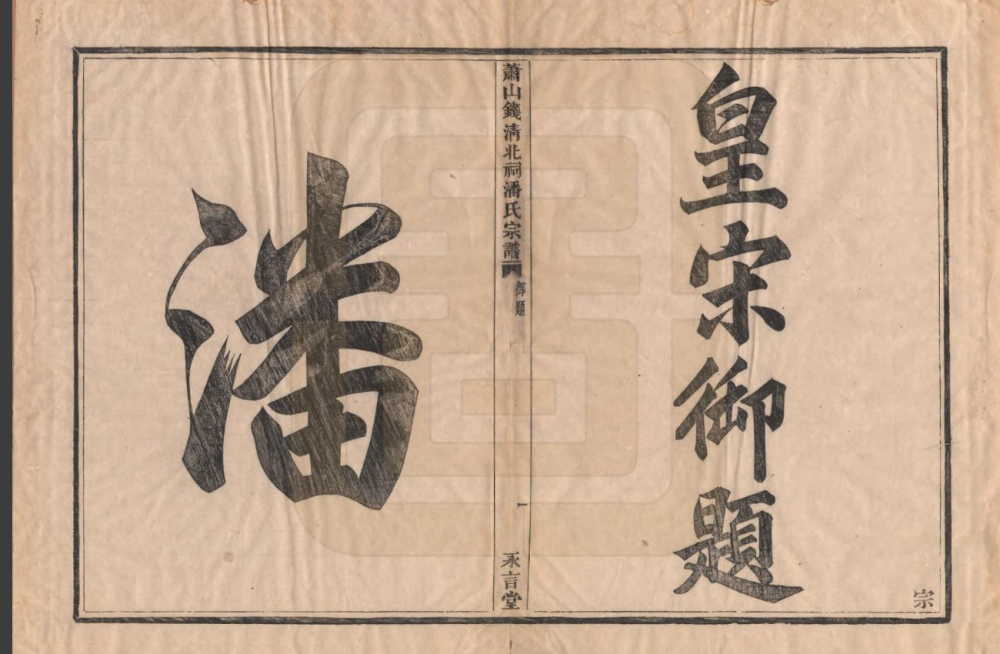 皇宋御題
宗
蕭山錢清北祠潘氏宗譜
御題
一
永言堂
潘